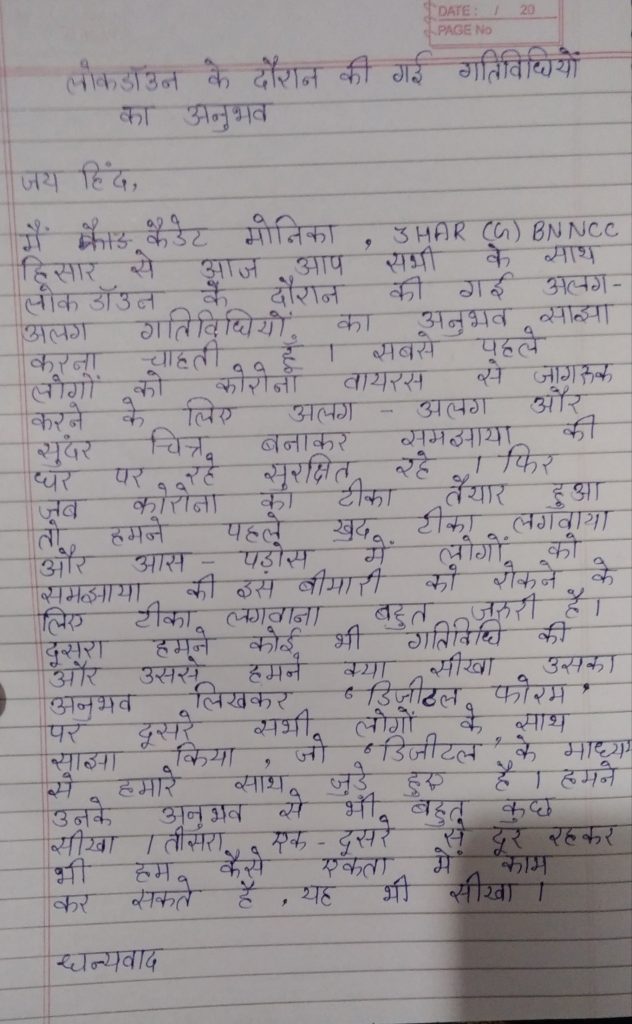 DATE: / 20
PAGE No
लोकडॉउन के दौरान की गई गतिविधियों
का अनुभव
जय हिंद,
मैं कैडेट मोनिका, 3HAR (G) BN NCC
हिसार से आज आप सभी के साथ
लोकडॉउन के दौरान की गई अलग-
अलग गतिविधियों का अनुभव साझा
करना चाहती हूँ । सबसे पहले
लोगों को कोरोना वायरस से जागरूक
करने के लिए अलग - अलग और
सुंदर चित्र बनाकर समझाया की
घर पर रहे सुरक्षित रहे । फिर
जब कोरोना का टीका तैयार हुआ
तो हमने पहले खुद टीका लगवाया
और आस - पड़ोस में लोगों को
समझाया की इस बीमारी को रोकने के
लिए टीका लगवाना बहुत जरुरी है ।
दूसरा हमने कोई भी गतिविधि की
और उससे हमने क्या सीखा उसका
अनुभव लिखकर 'डिजीटल फोरम'
पर दूसरे सभी लोगों के साथ
साझा किया, जो 'डिजीटल' के माध्यम
से हमारे साथ जुडे हुए है । हमने
उनके अनुभव से भी बहुत कुछ
सीखा । तीसरा एक - दूसरे से दूर रहकर
भी हम कैसे एकता में काम
कर सकते है, यह भी सीखा ।
धन्यवाद